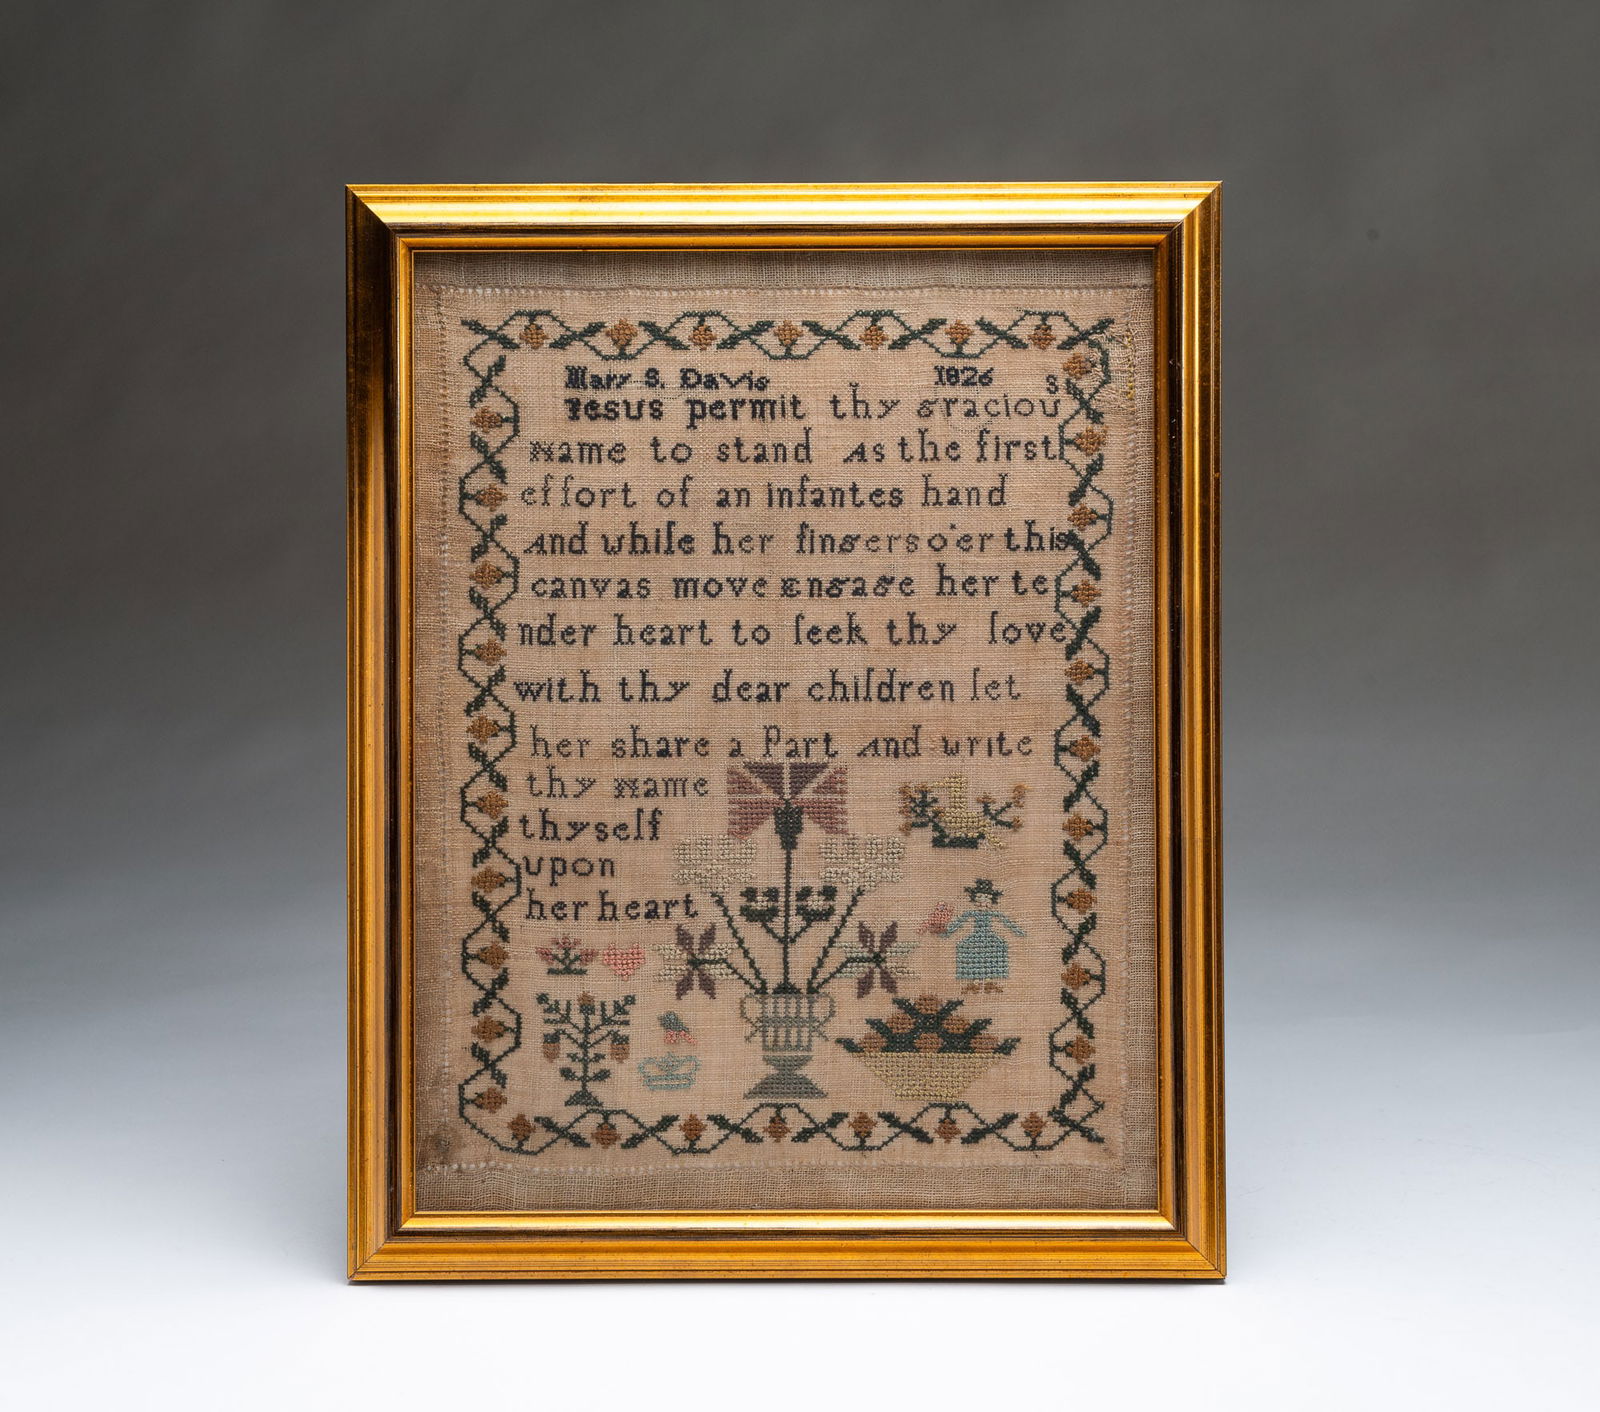 Mary S. Davis 1826
Jesus permit thy gracious
Name to stand As the first
effort of an infantes hand
And while her fingers o'er this
canvas move Engage her te
nder heart to ſeek thy love
with thy dear children let
her share a Part And write
thy Name
thyself
upon
her heart